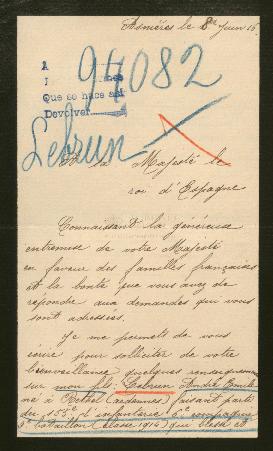 Asnières le 8 Juin 16.
94082
Que se hace así
Devolver
Lebrun
A la Majesté le
roi d'Espagne
Connaissant la généreuse
entremise de votre Majesté
en faveur des familles françaises
et la bonté que vous avez de
répondre aux demandes qui vous
sont adressées.
Je me permets de vous
écrire pour solliciter de votre
bienveillance quelques renseignements
sur mon fils: Lebrun André Emile
né à Rethel (Ardennes) faisant partie
du 155e d'infanterie 6e compagnie
bataillon (classe 1914) qui blessé et